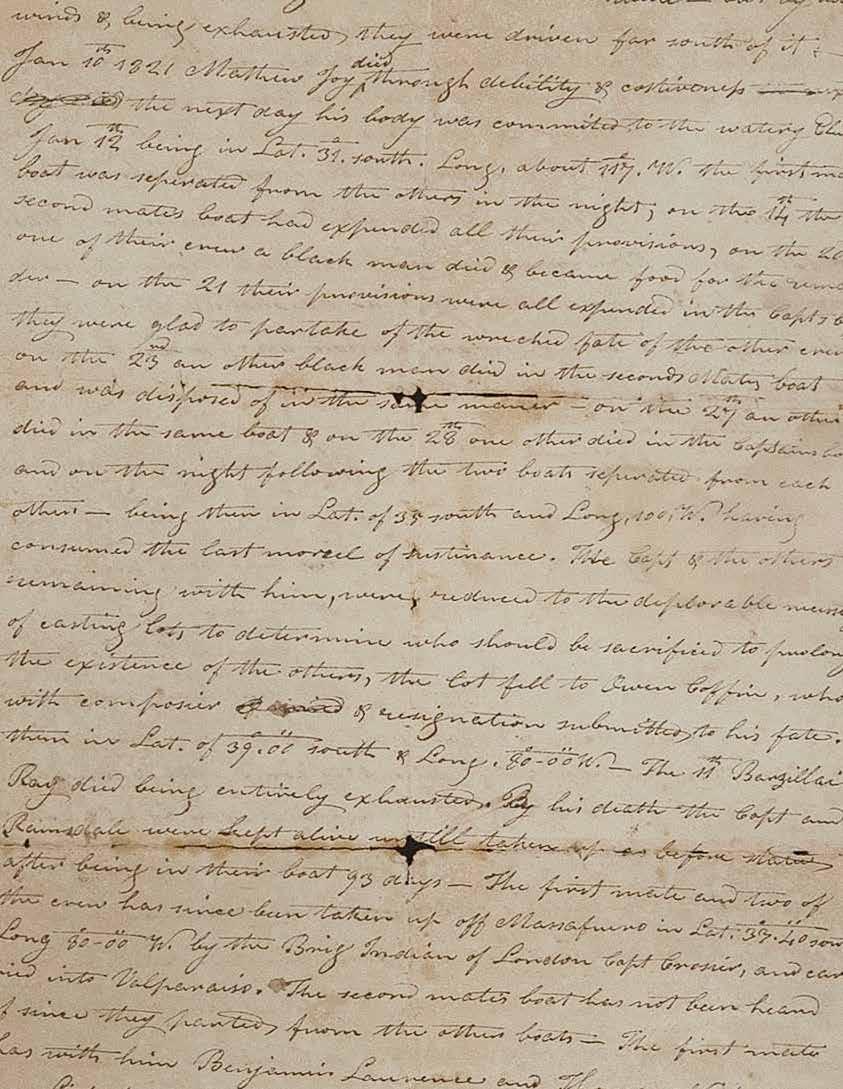 winds & being exhausted they were driven far south of it
Jan 10th 1821 Mathew Joy died through debility & costiveness
the next day his body was commited to the watery
Jan 12th being in Lat. 31. south. Long. about 117. W. the first
boat was seperated from the others in the night, on the 14th the
second mates boat had expended all their provisions, on the 20
one of their crew a black man died & became food for the
der — on the 21 their provisions were all expended in the Capts
they were glad to partake of the wreched fate of the other crew
on the 23rd an other black man died in the seconds Mates boat
and was disposed of in the same maner — on the 27th an other
died in the same boat & on the 28th one other died in the Captains
and on the night following the two boats seperated from each
other — being then in Lat. of 35 south and Long. 100, W. having
consumed the last morcel of sustinance. The Capt & the others
remaining with him, were reduced to the deplorable
of casting lots, to determine who should be sacrificed to prolong
the existence of the others, the lot fell to Owen Coffin, who
with composier & resignation submitted to his fate.
then in Lat. of 39.00 south & Long. 80-00 W. — The 11th Barzillai
Ray died being entirely exhausted. By his death the Capt and
Ramsdale were kept alive untill taken up as before stated
after being in their boat 93 days — The first mate and two of
the crew has since been taken up off Massafuero in Lat. 33.40
Long 80-00 W. by the Brig Indian of London Capt Crosier, and car
ried into Valparaiso. The second mates boat has not been heard
of since they parted from the other boats — The first mate
has with him Benjamin Laurence and